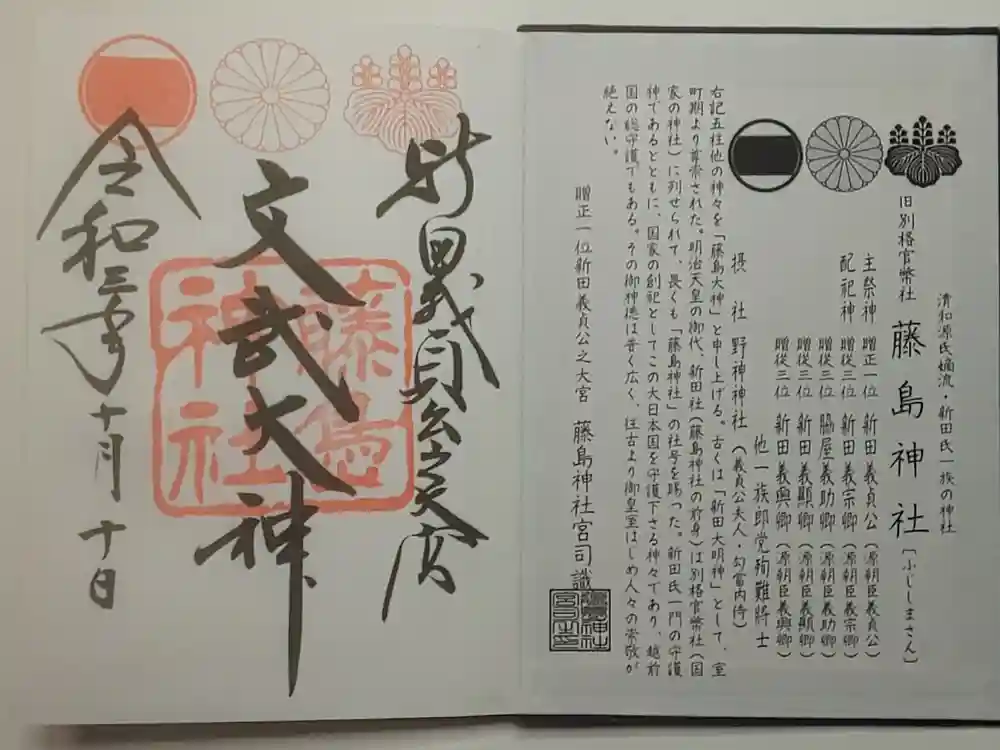 清和源氏嫡流・新田氏一族の神社
旧別格官幣社 藤島神社(ふじしまさん)
主祭神 贈正一位 新田義貞公(源朝臣義貞公)
配祀神 贈従三位 新田義宗卿(源朝臣義宗卿)
贈従三位 脇屋義助卿(源朝臣義助卿)
贈従三位 新田義顯卿(源朝臣義顯卿)
贈従三位 新田義興卿(源朝臣義興卿)
他一族郎党殉難将士
摂社 野神神社(義貞公夫人・勾當内侍)
右記五柱他の神々を「藤島大神」と申し上げる。古くは「新田大明神」として、室
町期より尊崇された。明治天皇の御代、新田社(藤島神社の前身)は別格官幣社(国
家の神社)に列せられて、長くも「藤島神社」の社号を賜った。新田氏一門の守護
神であるとともに、国家の創祀としてこの大日本国を守護下さる神々であり、越前
国の総守護でもある。その御神徳は普く広く、往古より御皇室はじめ人々の崇敬が
絶えない。
贈正一位新田義貞公之大宮 藤島神社宮司 識
藤島神社
宮司之印
新田義貞公之大宮
文武大神
藤島
神社
令和三年十月十日